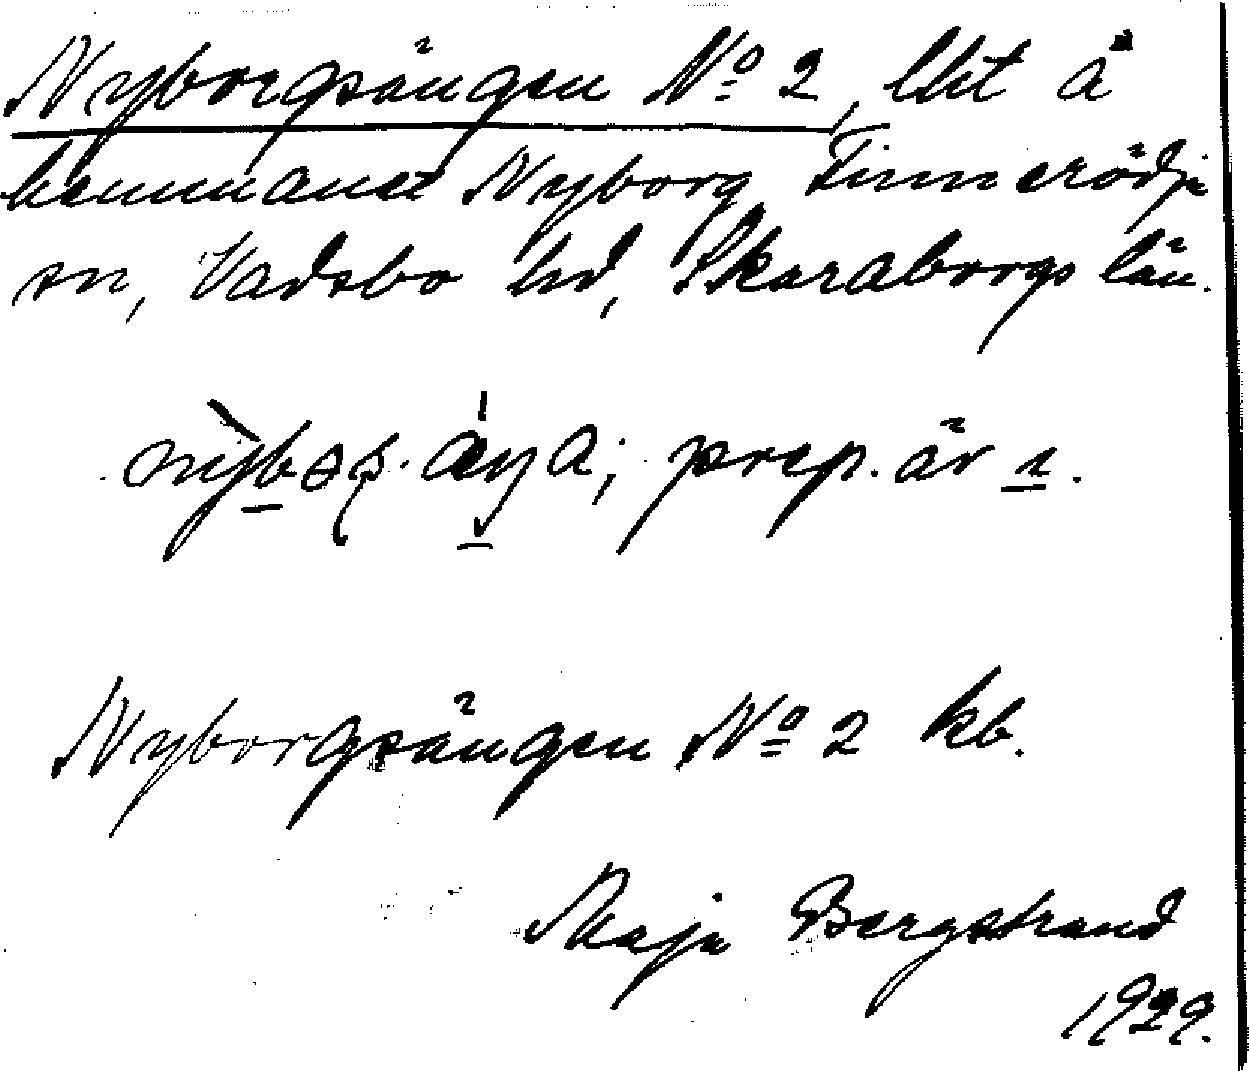 Nyborgsängen No 2, lht å
hemmanet Nyborg Tinnerödja
sn, Vadsbo hd, Skaraborgs län.
prep. är ɪ.
Nyborgsängen No 2 kb.
Maja Bergstrand
1929.